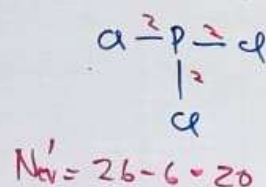 Cl —2— P —2— Cl
| 2
Cl
Nev' = 26-6 = 20